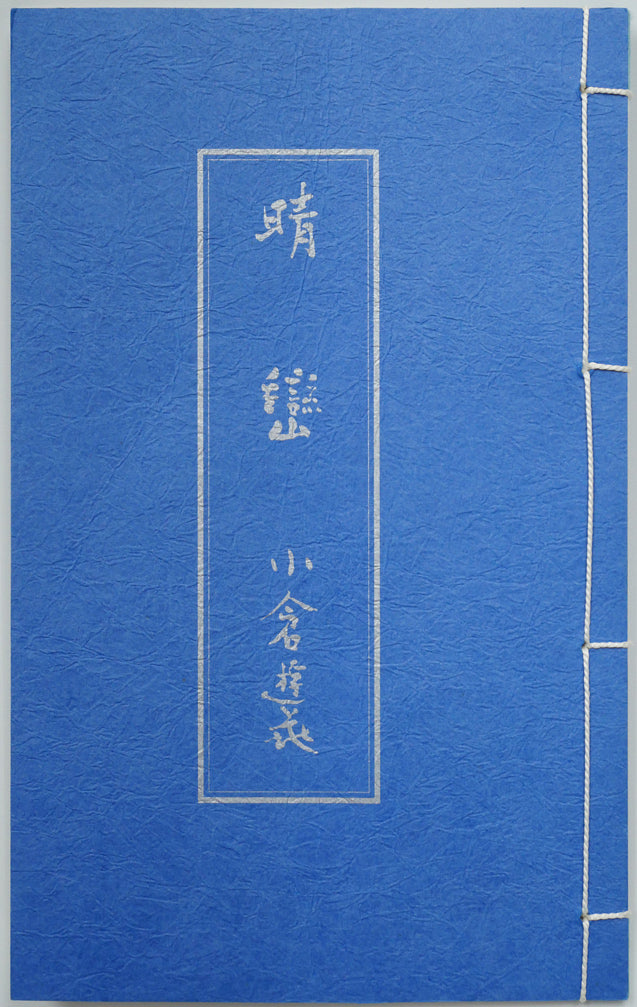 晴巒 小倉遊亀